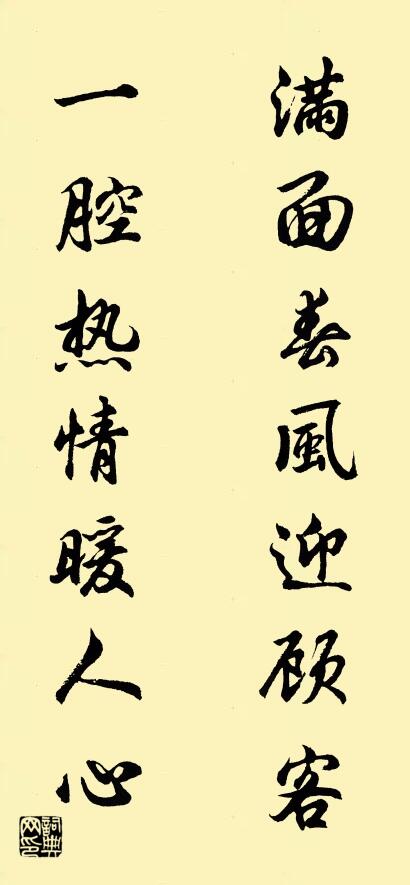 滿面春風迎顾客
一腔热情暖人心
詞典网印